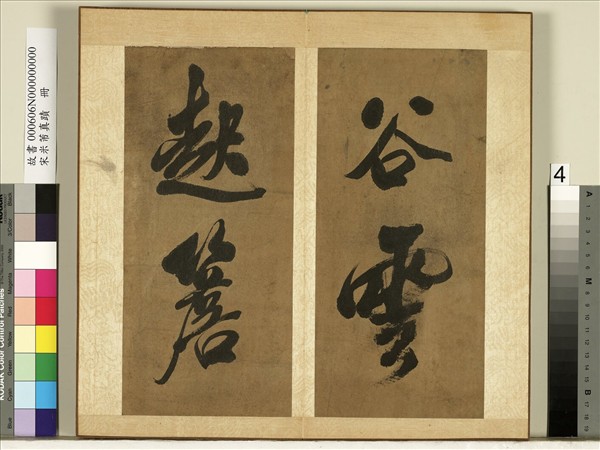 谷雲
簷
故書 000606N000000000
宋米芾真蹟 冊
4
KODAK Color Control Patches
Blue
Cyan
Green
Yellow
Red
Magenta
White
3/Color
Black
A 1 2 3 4 5 6 M 8 9 10 11 12 13 14 15 B 17 18 19